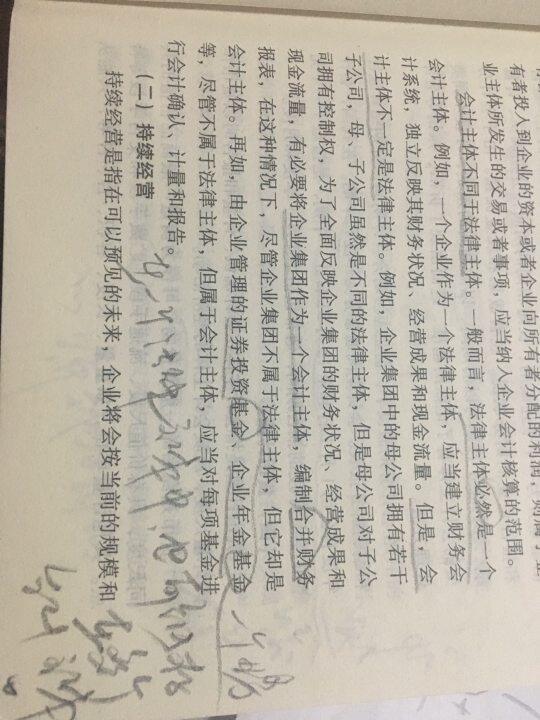 有者投入到企业的资本或者企业向所有者分配的利润，则属于企
业主体所发生的交易或者事项，应当纳入企业会计核算的范围。
会计主体不同于法律主体。一般而言，法律主体必然是一个
会计主体。例如，一个企业作为一个法律主体，应当建立财务会
计系统，独立反映其财务状况、经营成果和现金流量。但是，会
计主体不一定是法律主体。例如，企业集团中的母公司拥有若干
子公司，母、子公司虽然是不同的法律主体，但是母公司对子公
司拥有控制权，为了全面反映企业集团的财务状况、经营成果和
现金流量，有必要将企业集团作为一个会计主体，编制合并财务
报表，在这种情况下，尽管企业集团不属于法律主体，但它却是
会计主体。再如，由企业管理的证券投资基金、企业年金基金
等，尽管不属于法律主体，但属于会计主体，应当对每项基金进
行会计确认、计量和报告。
（二）持续经营
持续经营是指在可以预见的未来，企业将会按当前的规模和